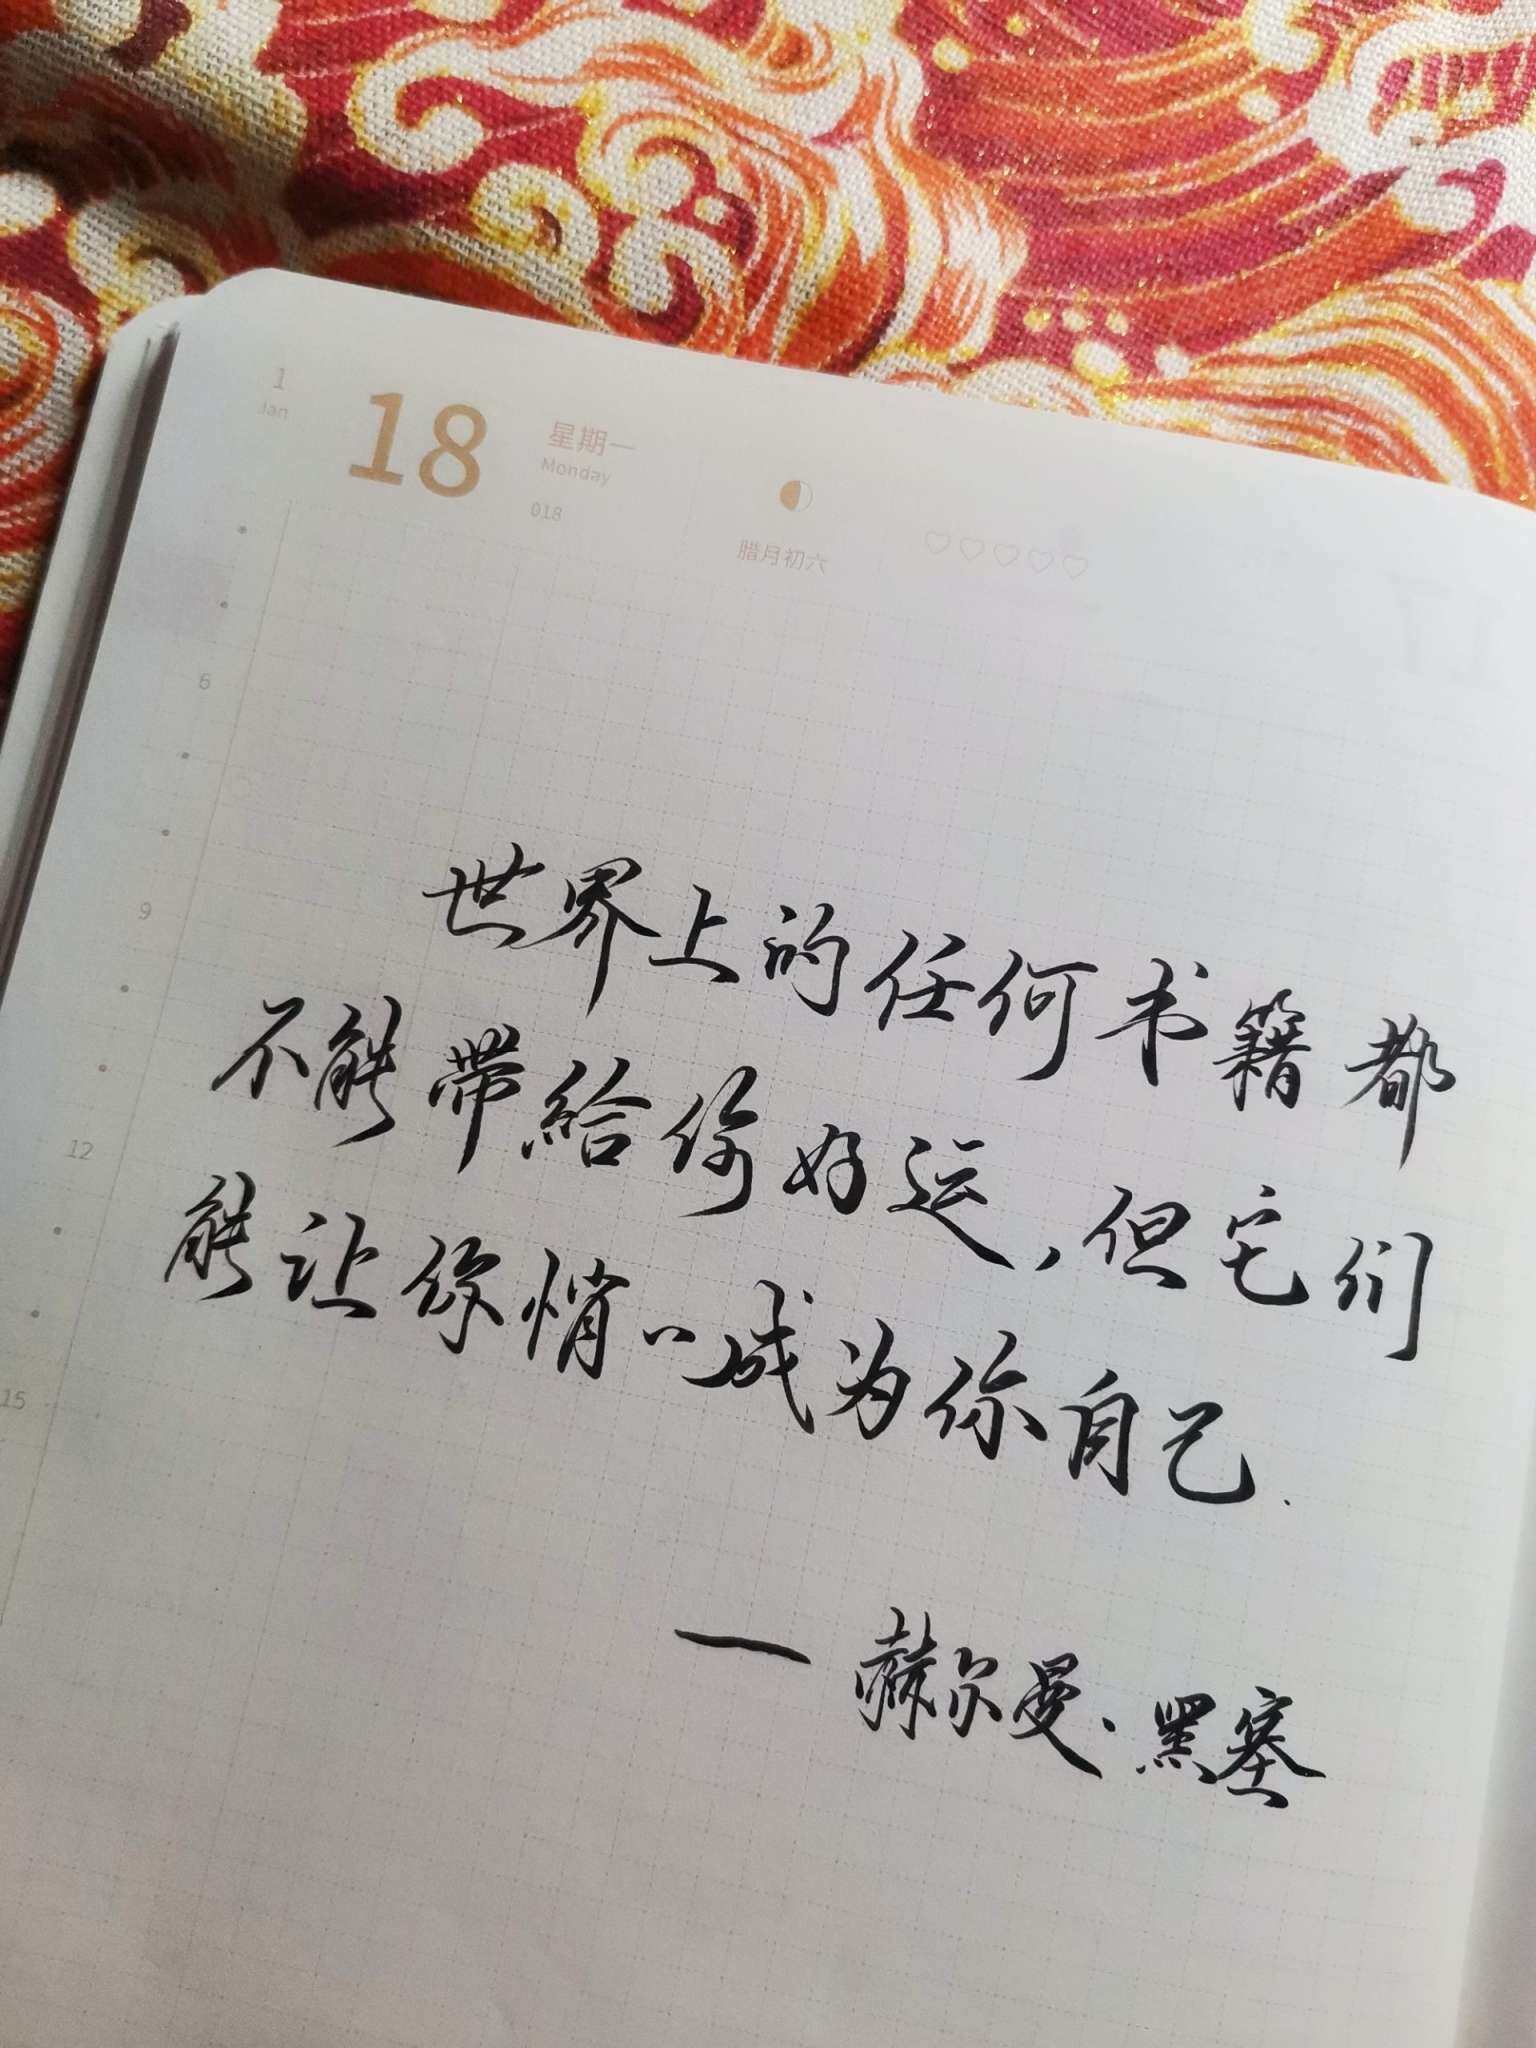 1
Jan
18
星期一
Monday
018
腊月初六
17
6
9
12
15
世界上的任何书籍都
不能带给你好运，但它们
能让你悄〻成为你自己.
— 赫尔曼·黑塞